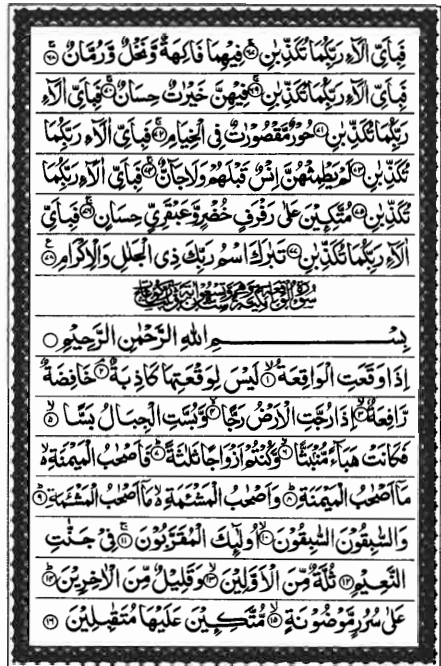 فَبِاَىِّ اٰلَآءِ رَبِّكُمَا تُكَذِّبٰنِ ﴿۶۷﴾ فِيْهِمَا فَاكِهَةٌ وَّنَخْلٌ وَّرُمَّانٌ ﴿۶۸﴾
فَبِاَىِّ اٰلَآءِ رَبِّكُمَا تُكَذِّبٰنِ ﴿۶۹﴾ فِيْهِنَّ خَيْرٰتٌ حِسَانٌ ﴿۷۰﴾ فَبِاَىِّ اٰلَآءِ
رَبِّكُمَا تُكَذِّبٰنِ ﴿۷۱﴾ حُوْرٌ مَّقْصُوْرٰتٌ فِى الْخِيَامِ ﴿۷۲﴾ فَبِاَىِّ اٰلَآءِ رَبِّكُمَا
تُكَذِّبٰنِ ﴿۷۳﴾ لَمْ يَطْمِثْهُنَّ اِنْسٌ قَبْلَهُمْ وَلَا جَآنٌّ ﴿۷۴﴾ فَبِاَىِّ اٰلَآءِ رَبِّكُمَا
تُكَذِّبٰنِ ﴿۷۵﴾ مُتَّكِـِٕيْنَ عَلٰى رَفْرَفٍ خُضْرٍ وَّعَبْقَرِىٍّ حِسَانٍ ﴿۷۶﴾ فَبِاَىِّ
اٰلَآءِ رَبِّكُمَا تُكَذِّبٰنِ ﴿۷۷﴾ تَبٰرَكَ اسْمُ رَبِّكَ ذِى الْجَلٰلِ وَالْاِكْرَامِ ﴿۷۸﴾
بِسْمِ اللهِ الرَّحْمٰنِ الرَّحِيْمِ
اِذَا وَقَعَتِ الْوَاقِعَةُ ﴿۱﴾ لَيْسَ لِوَقْعَتِهَا كَاذِبَةٌ ﴿۲﴾ خَافِضَةٌ
رَّافِعَةٌ ﴿۳﴾ اِذَا رُجَّتِ الْاَرْضُ رَجًّا ﴿۴﴾ وَّبُسَّتِ الْجِبَالُ بَسًّا ﴿۵﴾
فَكَانَتْ هَبَآءً مُّنْۢبَثًّا ﴿۶﴾ وَّكُنْتُمْ اَزْوَاجًا ثَلٰثَةً ﴿۷﴾ فَاَصْحٰبُ الْمَيْمَنَةِ
مَاۤ اَصْحٰبُ الْمَيْمَنَةِ ﴿۸﴾ وَاَصْحٰبُ الْمَشْـَٔمَةِ مَاۤ اَصْحٰبُ الْمَشْـَٔمَةِ ﴿۹﴾
وَالسّٰبِقُوْنَ السّٰبِقُوْنَ ﴿۱۰﴾ اُولٰٓئِكَ الْمُقَرَّبُوْنَ ﴿۱۱﴾ فِىْ جَنّٰتِ
النَّعِيْمِ ﴿۱۲﴾ ثُلَّةٌ مِّنَ الْاَوَّلِيْنَ ﴿۱۳﴾ وَقَلِيْلٌ مِّنَ الْاٰخِرِيْنَ ﴿۱۴﴾
عَلٰى سُرُرٍ مَّوْضُوْنَةٍ ﴿۱۵﴾ مُّتَّكِـِٕيْنَ عَلَيْهَا مُتَقٰبِلِيْنَ ﴿۱۶﴾